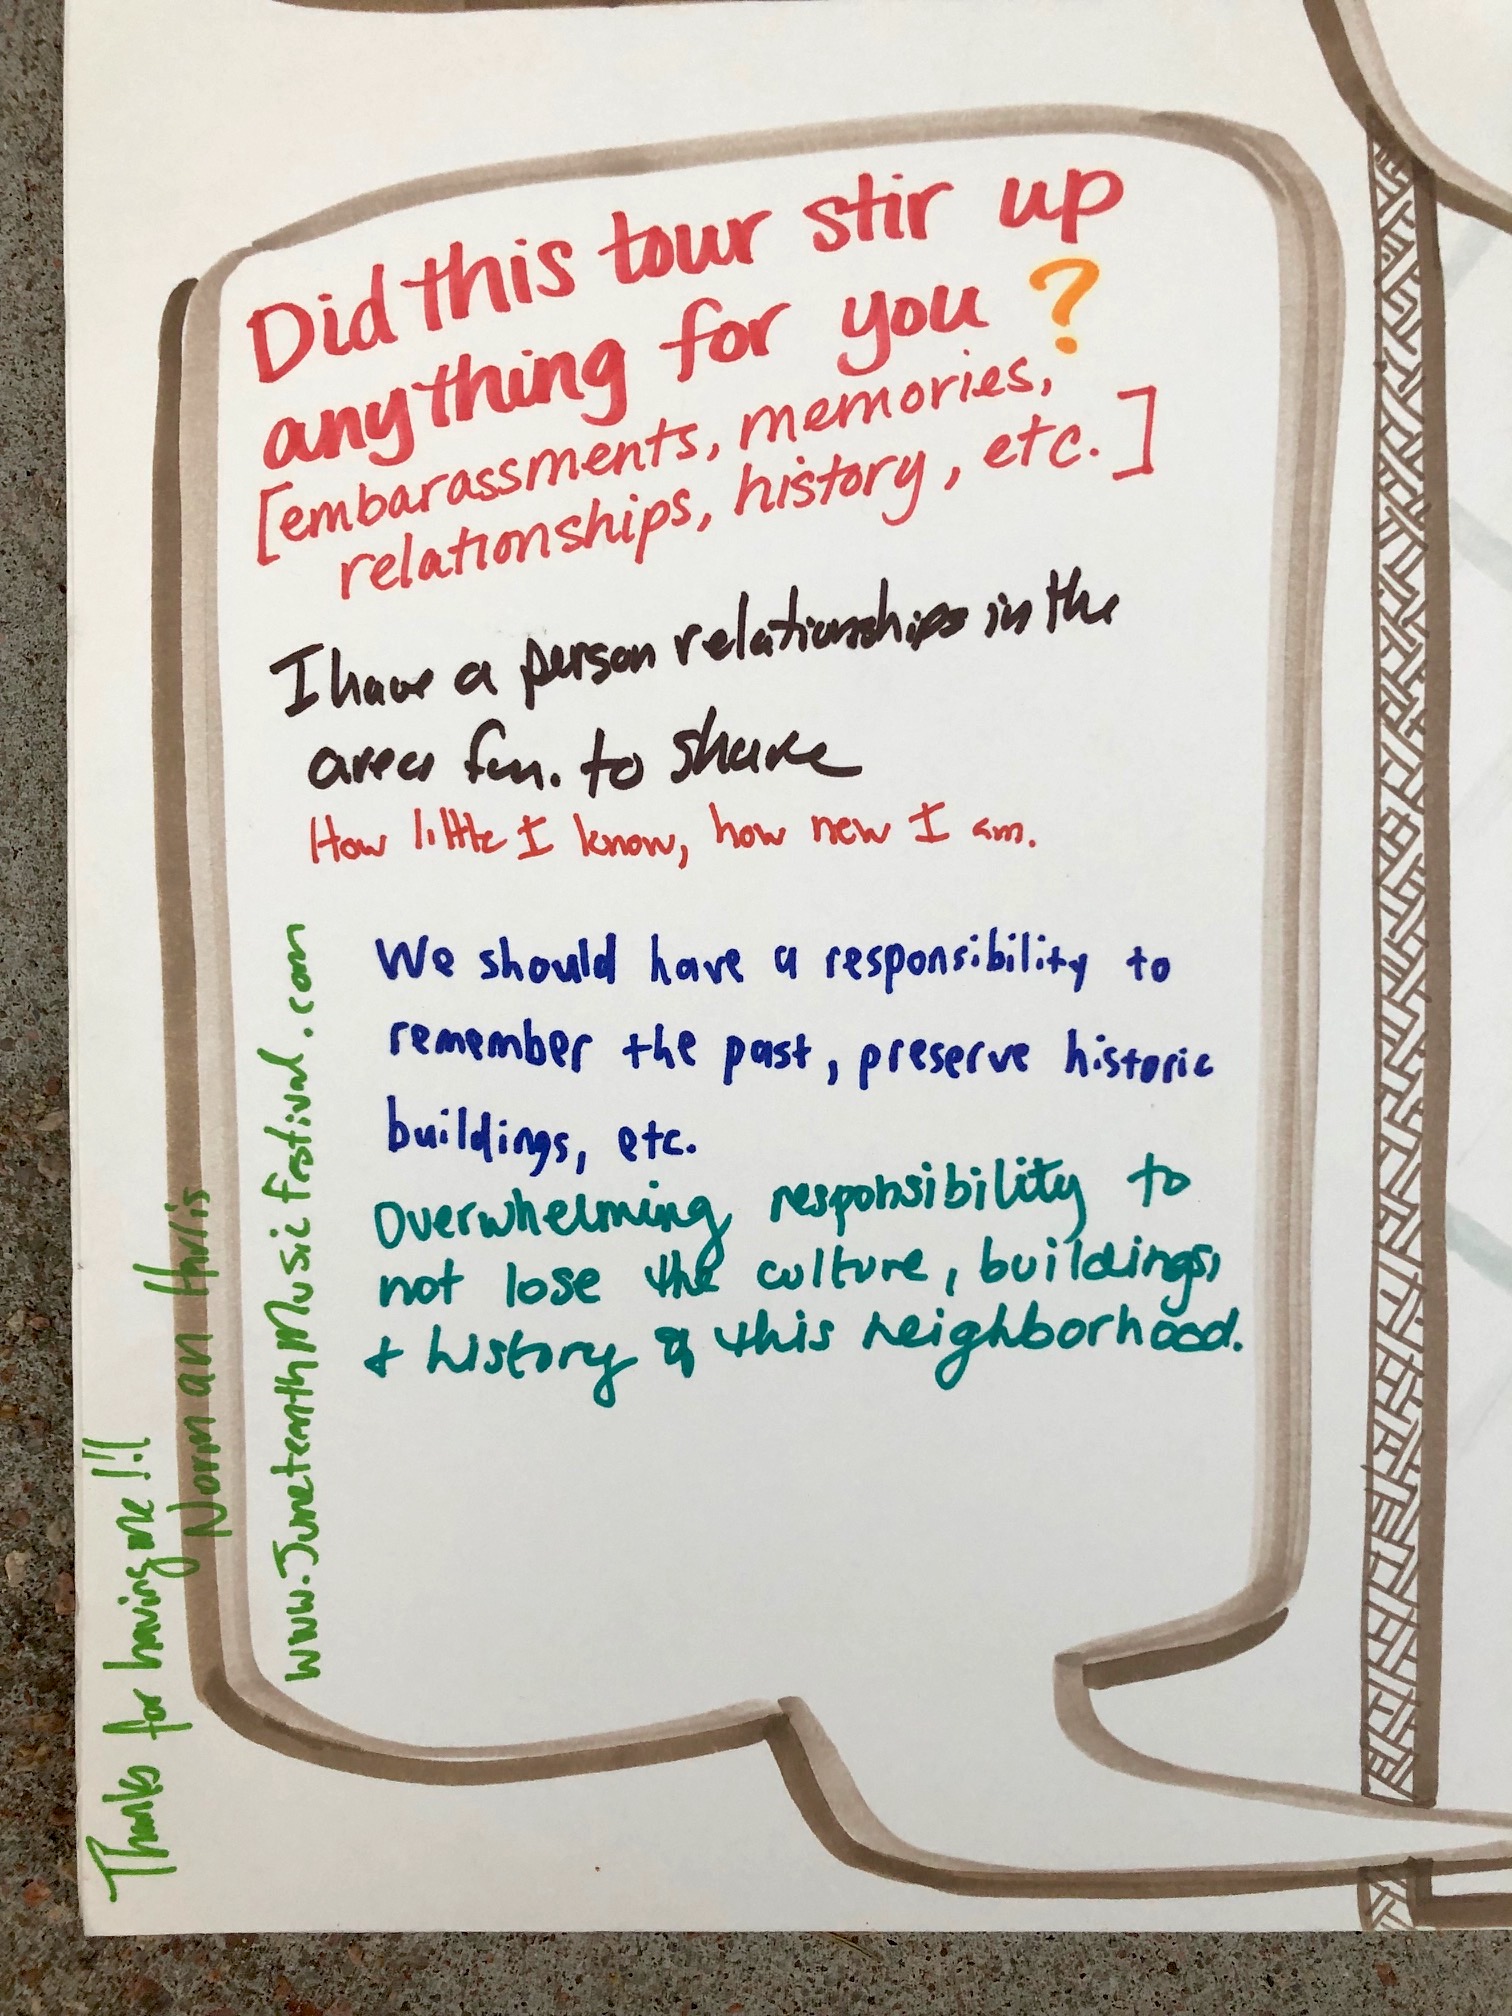 Did this tour stir up
anything for you?
[embarassments, memories,
relationships, history, etc.]
I have a person relationships in the
area fun. to share
How little I know, how new I am.
We should have a responsibility to
remember the past, preserve historic
buildings, etc.
Overwhelming responsibility to
not lose the culture, buildings,
+ history of this neighborhood.
www.JuneteenthMusicFestival.com
Thanks for having me!!!
Norman Harris